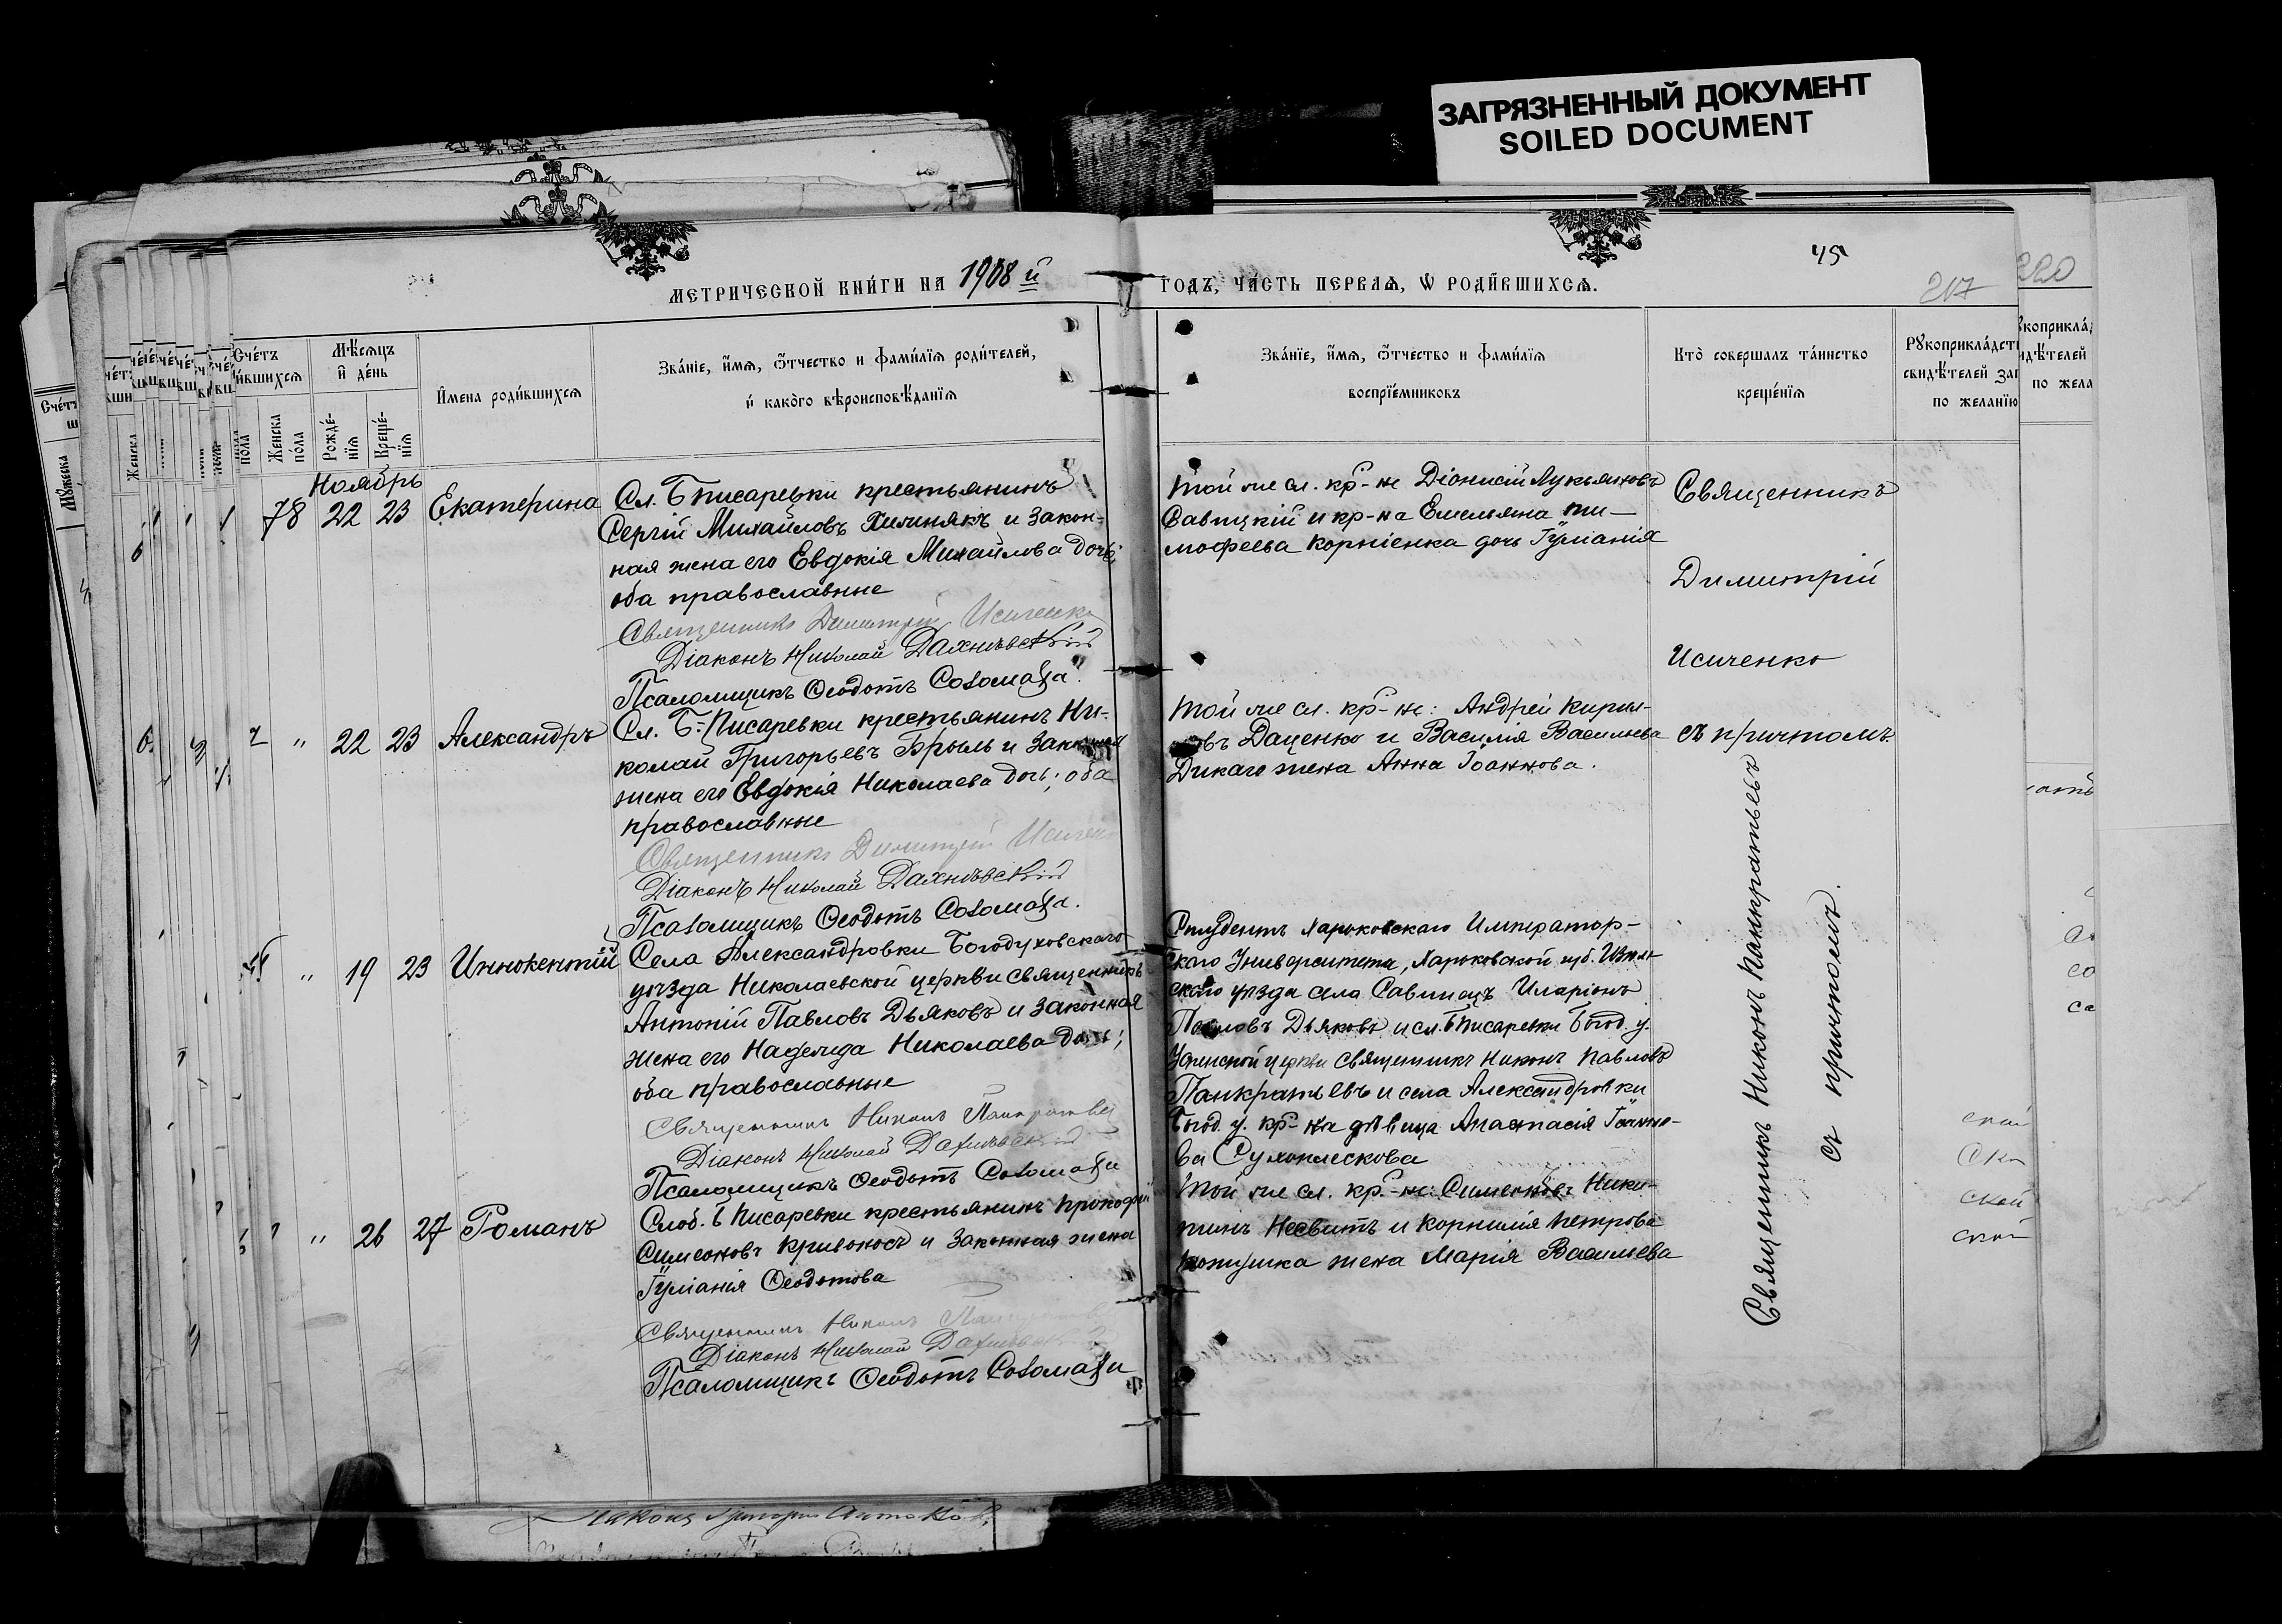 ЗАГРЯЗНЕННЫЙ ДОКУМЕНТ
SOILED DOCUMENT
МЕТРИЧЕСКОЙ КНИ́ГИ НА 1908 й
ГОДЪ, ЧА́СТЬ ПЕРВАѦ, Ѡ РОДИ́ВШИХСѦ.
45
217
220
Счéтъ
Мѣ́сяцъ
и҆ де́нь
Женска
по́ла
Рожде́-
нїѧ
Креще́-
нїѧ
И҆мена роди́вшихсѧ
Зва́нїе, и҆́мѧ, ѻ҆́тчество и фами́лїѧ роди́телей,
и҆ како́го вѣроисповѣ́данїѧ
Зва́нїе, и҆́мѧ, ѻ҆́тчество и фами́лїѧ
воспрїе́мниковъ
Кто̀ соверша́лъ та́инство
креще́нїѧ
Рꙋкоприкла́дст
свидѣ́телей за
по жела́нїю
Ноябрь
78 22 23 Екатерина
Сл. Б Писаревки крестьянинъ
Сергій Михайловъ Хижнякъ и закон-
ная жена его Евдокія Михайлова дочь;
оба православные
Священникъ Димитрій Исиченко
Діаконъ Николай Дахнѣвскій
Псаломщикъ Ѳеодотъ Соломаха.
Той же сл. кр-не Діонисій Лукьяновъ
Савицкій и кр-на Емельяна Ти-
мофеева Корніенка дочь Іуліанія
Священникъ
Димитрій
Исиченко
съ причтомъ.
" 22 23 Александръ
Сл. Б.-Писаревки крестьянинъ Ни-
колай Григорьевъ Брыль и законная
жена его Евдокія Николаева дочь; оба
православные
Священникъ Димитрій Исиченко
Діаконъ Николай Дахнѣвскій
Псаломщикъ Ѳеодотъ Соломаха.
Той же сл. кр-не: Андрей Кирил-
овъ Даценко и Василія Васильева
Дикаго жена Анна Іоаннова.
" 19 23 Иннокентій
Села Александровки Богодуховскаго
уѣзда Николаевской церкви священникъ
Антоній Павловъ Дьяковъ и законная
жена его Надежда Николаева дочь;
оба православные
Священникъ Никонъ Панкратьевъ
Діаконъ Николай Дахнѣвскій
Псаломщикъ Ѳеодотъ Соломаха
Студентъ Харьковскаго Император-
скаго Университета, Харьковской губ. Изюм-
скаго уѣзда села Савинецъ Иларіонъ
Павловъ Дьяковъ и сл. Б Писаревки Богод. у.
Успенской церкви священникъ Никонъ Павловъ
Панкратьевъ и села Александровки
Богод. у. кр-на дѣвица Анастасія Іоанно-
ва Сухоплескова
Священникъ Никонъ Панкратьевъ
съ причтомъ.
" 26 27 Романъ
Слоб. Б Писаревки крестьянинъ Прокофій
Симеоновъ Кривоносъ и законная жена
Іуліанія Ѳеодотова
Священникъ Никонъ
Діаконъ Николай Дахнѣвскій
Псаломщикъ Ѳеодотъ Соломаха
Той же сл. кр.-не: Симеонъ Ники-
тинъ Несвитъ и Корнилія Петрова
жена Марія Васильева